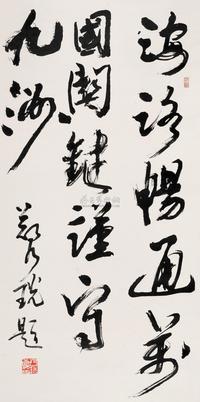 海路暢通萬
國關鍵謹守
九洲
鄭乃珖題